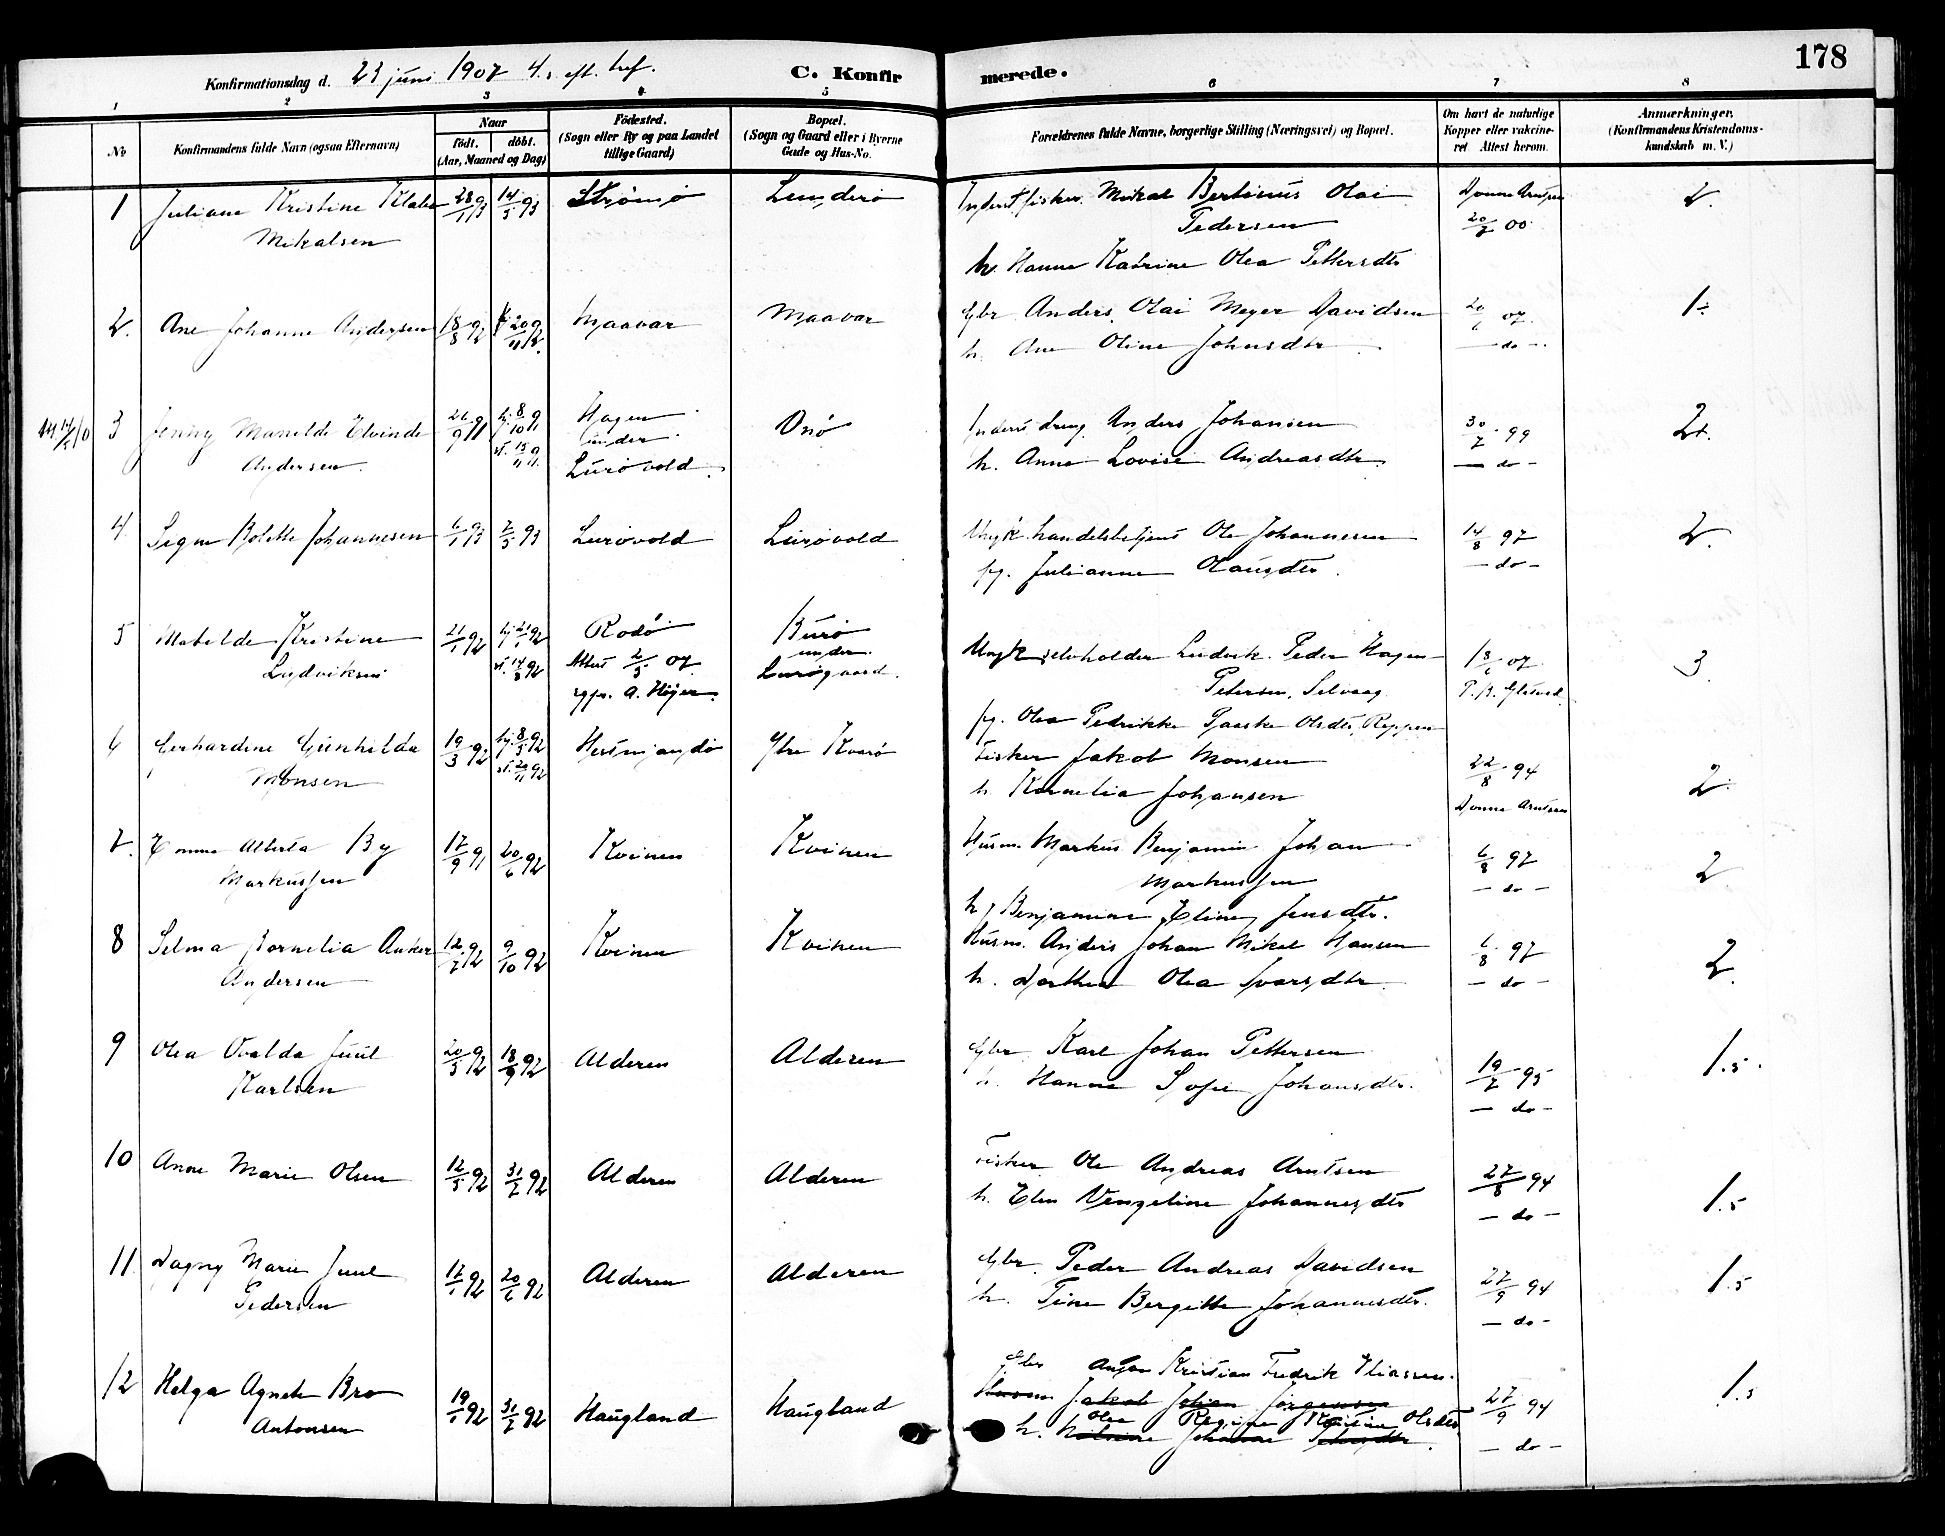 178
Konfirmationsdag d. 23 juni 1907 4. s. eft. tref.
C. Konfirmerede.
1 2 3 4 5 6 7 8
No
Konfirmandens fulde Navn (ogsaa Efternavn)
Naar
födt. döbt.
(Aar, Maaned og Dag)
Födested.
(Sogn eller By og paa Landet
tillige Gaard)
Bopæl.
(Sogn og Gaard eller i Byerne
Gade og Hus-No.
Forældrenes fulde Navne, borgerlige Stilling (Næringsvei) og Bopæl.
Om havt de naturlige
Kopper eller vakcine-
ret Attest herom.
Anmærkninger.
(Konfirmandens Kristendoms-
kundskab m. V.)
1 Juliane Kristine 28/1 93 14/5 93 Strømø Lunderø Inderst fisker Mikal Bertinus Olai Dønne Arntsen 2.
Mikalsen Pedersen 20/7 00
h. Hanna Katrine Olea Pettersdtr
2. Ane Johanne Andersen 18/8 92 20/11 92 Maavær Maavær Gbr Anders Olai Meyer Davidsen 20/6 07. 1÷
h. Ane Oline Johnsdtr — do —
14/5 10 3 Jenny Manelde Elvinde 26/9 91 hj. 8/10 91 Hagen Onø Inderst dreng Anders Johansen 30/7 99 2+.
Andersen st. 15/11 91 under h. Anne Lovise Andreasdtr — do —
Lurøvold
4 Signe Bolette Johannesen 6/1 93 7/5 93 Lurøvold Lurøvold Ungk. handelsbetjent Ole Johannesen 14/8 97 2.
pg. Julianne Olausdtr. — do —
5 Matelde Kristine 21/1 92 hj 21/1 92 Rødø Burø Ungk selvholder Ludvik Peder Hagen 13/6 07 3.
Ludviksen st. 14/8 92 Attest 2/5 07 under Petersen, Selvaag
sgpr. A. Höyer. Lurøgaard. pg. Olea Pedrikke Paaske Olsdtr, Reppen
6 Gerhardine Gunhilda 19/3 92 hj. 8/5 92 Hestmandø Ytre Kvarø Fisker Jakob Monsen 22/8 94 2.
Monsen st. 20/11 92 h. Kornelia Johansen Dønne Arntsen
7. Emma Alberta By 17/9 91 20/6 92 Kvinen Kvinen Husm. Markus Benjamin Johan 6/8 97 2
Markussen Markussen — do —
h. Benjamine Eline Jensdtr.
8 Selma Kornelia Anker 12/7 92 9/10 92 Kvinen Kvinen Husm. Anders Johan Mikel Hansen 6/8 97 2.
Andersen h. Dorthea Olea Ivarsdtr — do —
9 Olea Ovalda Juul 20/5 92 18/9 92 Alderen Alderen Gbr. Karl Johan Pettersen 19/7 95 1.5.
Karlsen h. Hanna Sofie Johansdtr. — do —
10 Anne Marie Olsen 12/5 92 31/7 92 Alderen Alderen Fisker Ole Andreas Arntsen 27/8 94 1.5
h. Elen Vengeline Johannesdtr — do —
11 Dagny Marie Juul 17/1 92 20/6 92 Alderen Alderen Gbr. Peder Andreas Davidsen 27/9 94 1.5
Pedersen h. Tine Bergitte Johannesdtr. — do —
12 Helga Agnete Bro 19/1 92 31/7 92 Haugland Haugland Gbr Anton Kristian Fredrik Eliassen. 27/9 94 1.5
Antonsen Husm Jakob Johan Jørgensen
Olea Regine Kristine Olsdtr
h. Johanna — do —